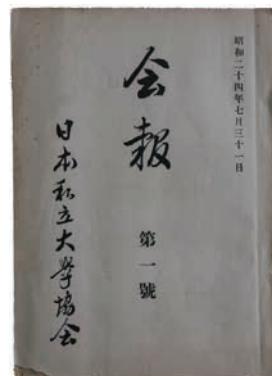 昭和二十四年七月三十一日
会報
第一號
日本私立大學協会